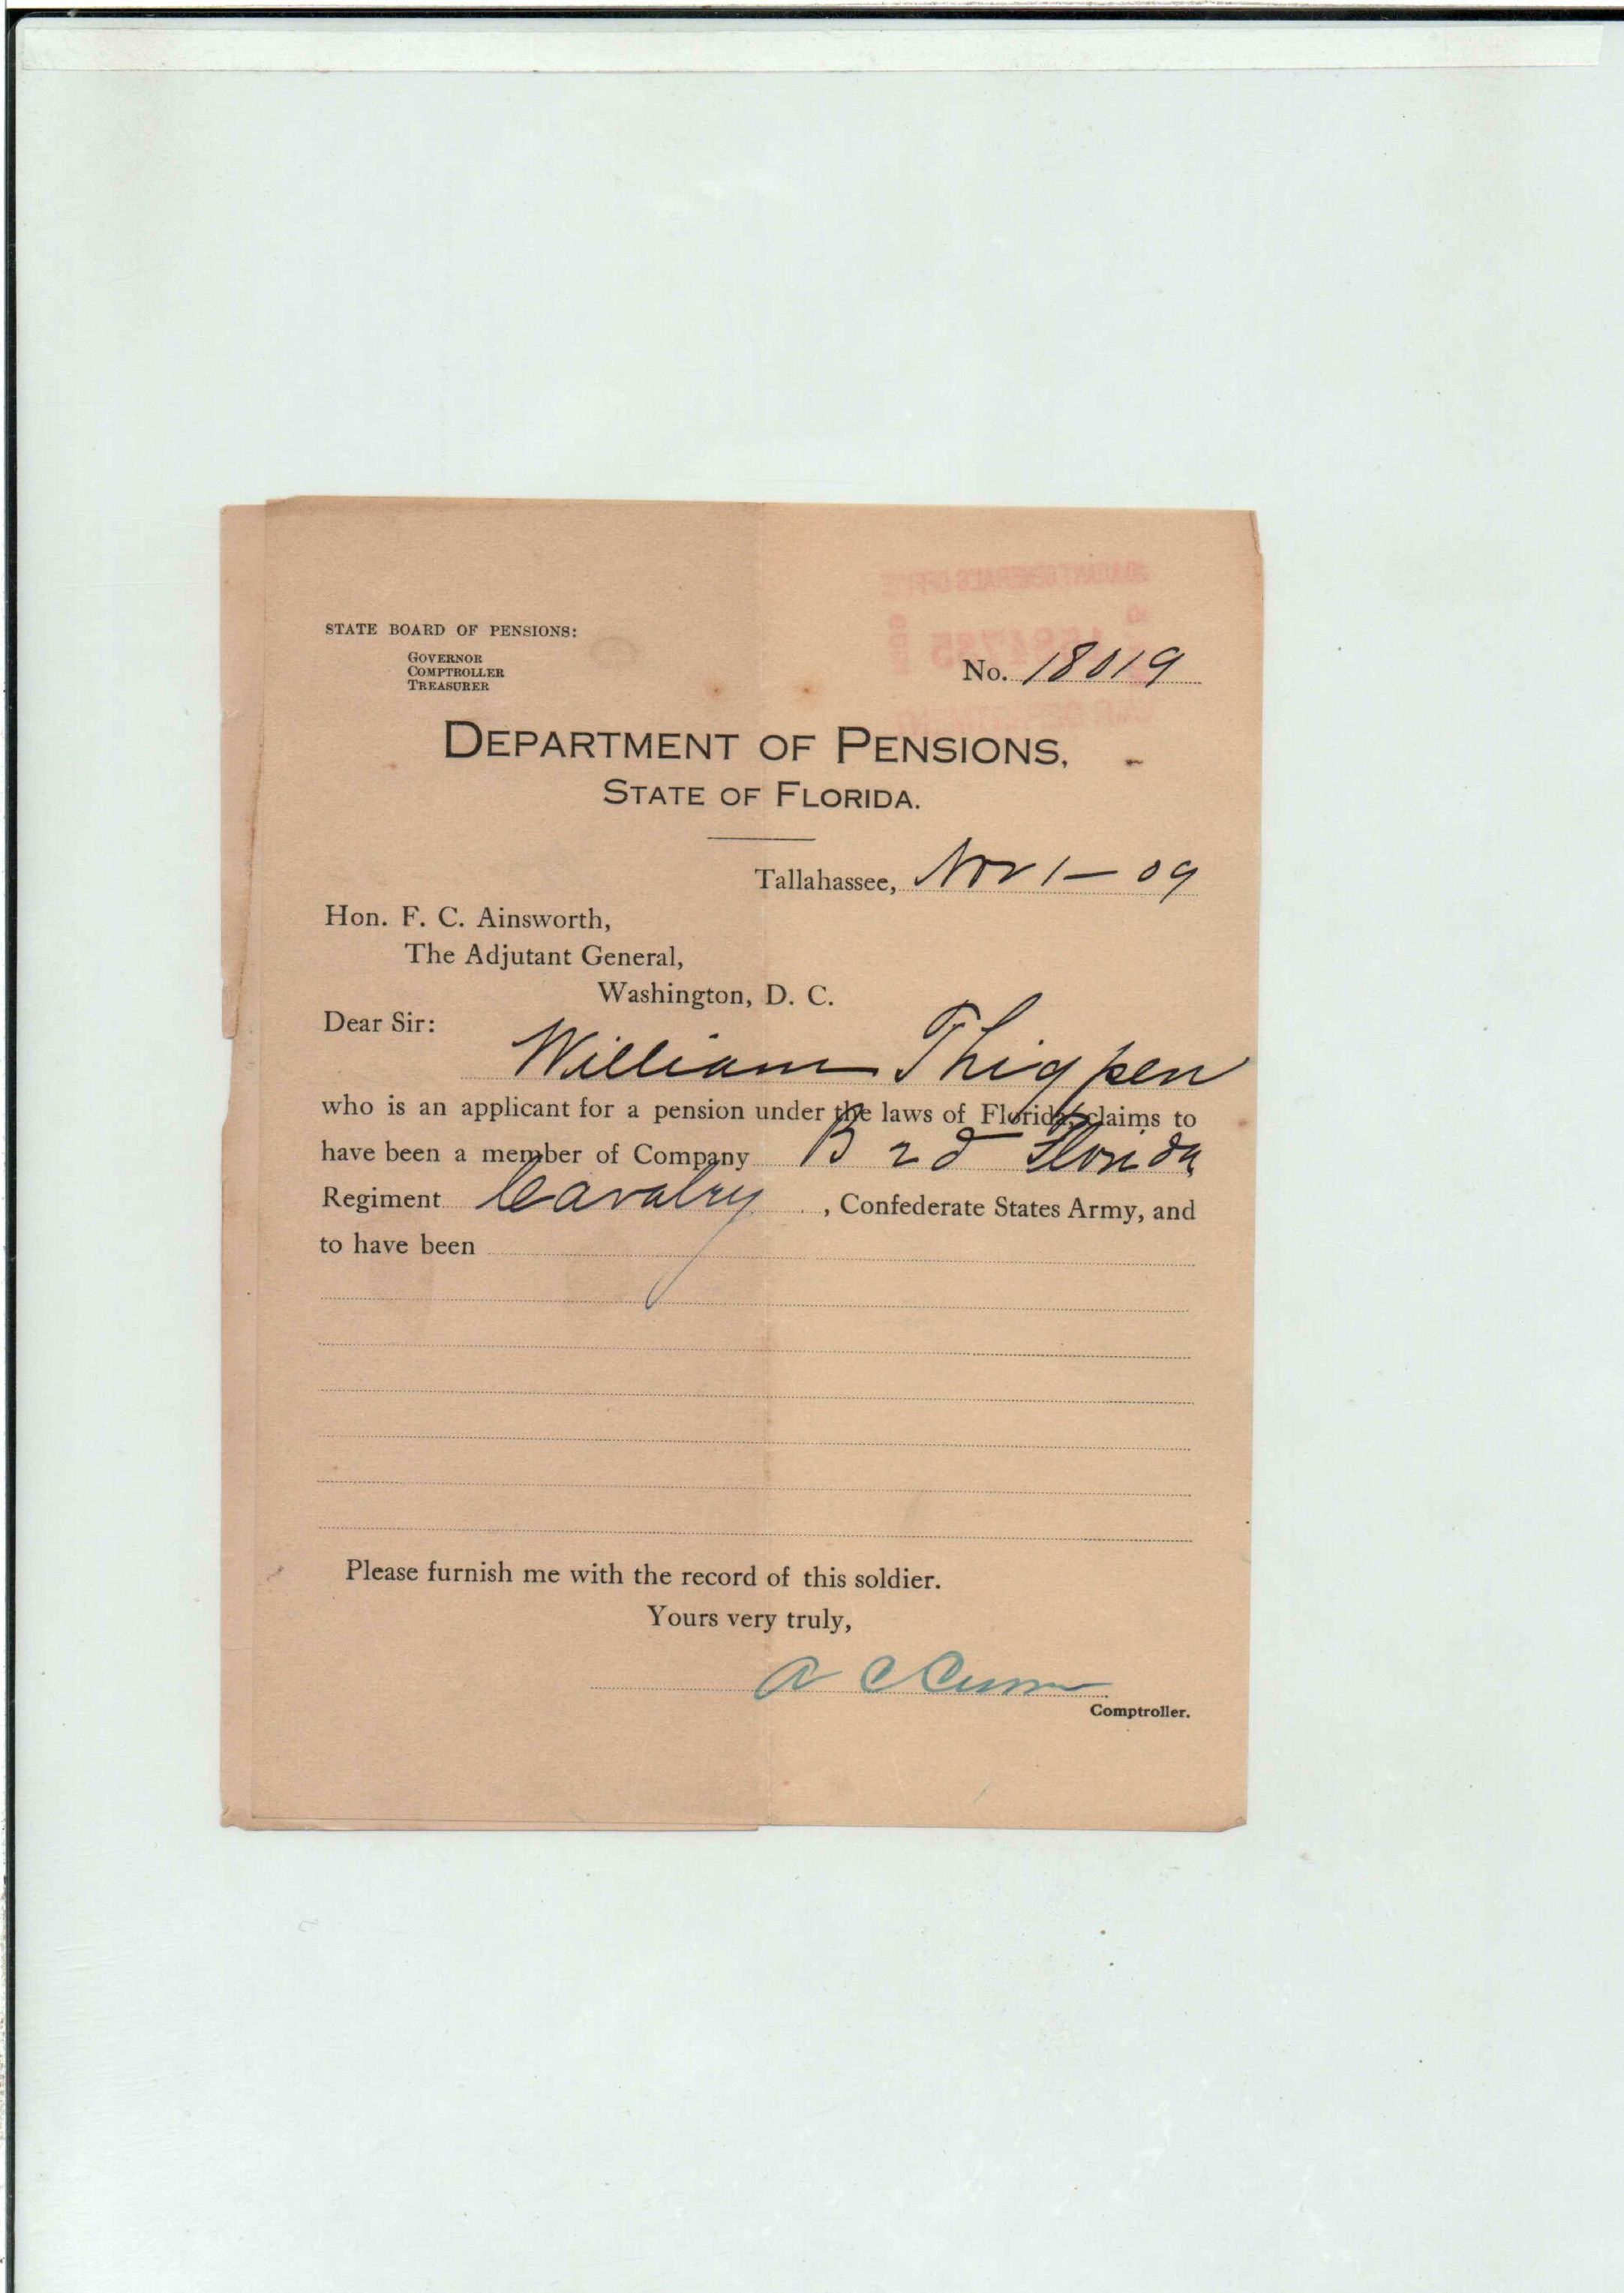 STATE BOARD OF PENSIONS:
GOVERNOR
COMPTROLLER
TREASURER
No. 18019
DEPARTMENT OF PENSIONS,
STATE OF FLORIDA.
Tallahassee, Nov 1 — 09
Hon. F. C. Ainsworth,
The Adjutant General,
Washington, D. C.
Dear Sir:
William Thigpen
who is an applicant for a pension under the laws of Florida, claims to
have been a member of Company B 2d Florida
Regiment Cavalry, Confederate States Army, and
to have been
Please furnish me with the record of this soldier.
Yours very truly,
A C Croom
Comptroller.